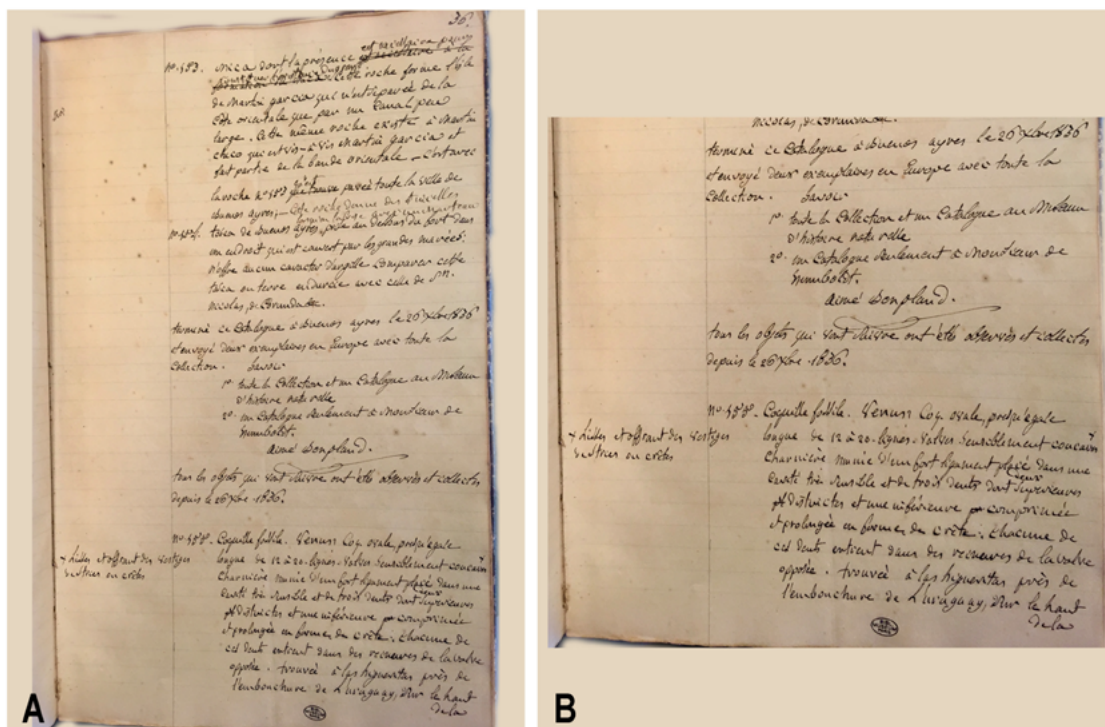 36.
nº. 583. mica dont la présence
est nécessaire pour
de Martin garcia qui n'est separeé de la
côte orientale que par un Canal peu
large. Cette même roche existe à Martin
chico qui est vis-à-vis Martin garcia et
fait partie de la bande orientale – C'est avec
la roche nº 583 paveé toute la ville de
buenos ayres, – Cette roche donne des étincelles
tosca de buenos ayres, prise au dessous du fort dans
un endroit qui est couvert par les grandes mareés;
n'offre aucun caractere d'argille. Comparer cette
tosca ou terre endurcie avec celle de Sn.
nicolas, de
terminé ce Catalogue à buenos ayres le 26 Xbre 1836
et envoyé deux exemplaires en Europe avec toute la
Collection. Savoir
1º. toute la Collection et un Catalogue au Museum
d'histoire naturelle
2º. un Catalogue seulement à Monsieur de
humboldt.
aimé bonpland.
tous les objets qui vont suivre ont été observés et collectés
depuis le 26 Xbre 1836.
Coquille fossile. Venus; Coq. ovale, presqu'egale
+ Lisses et offrant des vestiges
longue de 12 à 20. lignes. Valves sensiblement concaves
de stries en crêtes
Charnière munie d'un fort ligament placé dans une
cavité très sensible et de trois dents dont superieures
distinctes et une inférieure comprimée
et prolongée en forme de crête. chacune de
ces dents entrent dans des de la valve
opposée. trouveé à las higueritas près de
l'embouchure de L'uruguay, sur le haut
de la
A
nicolas, de
terminé ce Catalogue à buenos ayres le 26 Xbre 1836
et envoyé deux exemplaires en Europe avec toute la
Collection. Savoir
1º. toute la Collection et un Catalogue au Museum
d'histoire naturelle
2º. un Catalogue seulement à Monsieur de
humboldt.
aimé bonpland.
tous les objets qui vont suivre ont été observés et collectés
depuis le 26 Xbre 1836.
Coquille fossile. Venus; Coq. ovale, presqu'egale
+ Lisses et offrant des vestiges
longue de 12 à 20. lignes. Valves sensiblement concaves
de stries en crêtes
Charnière munie d'un fort ligament placé dans une
cavité très sensible et de trois dents dont superieures
distinctes et une inférieure comprimée
et prolongée en forme de crête. chacune de
ces dents entrent dans des de la valve
opposée. trouveé à las higueritas près de
l'embouchure de L'uruguay, sur le haut
de la
B